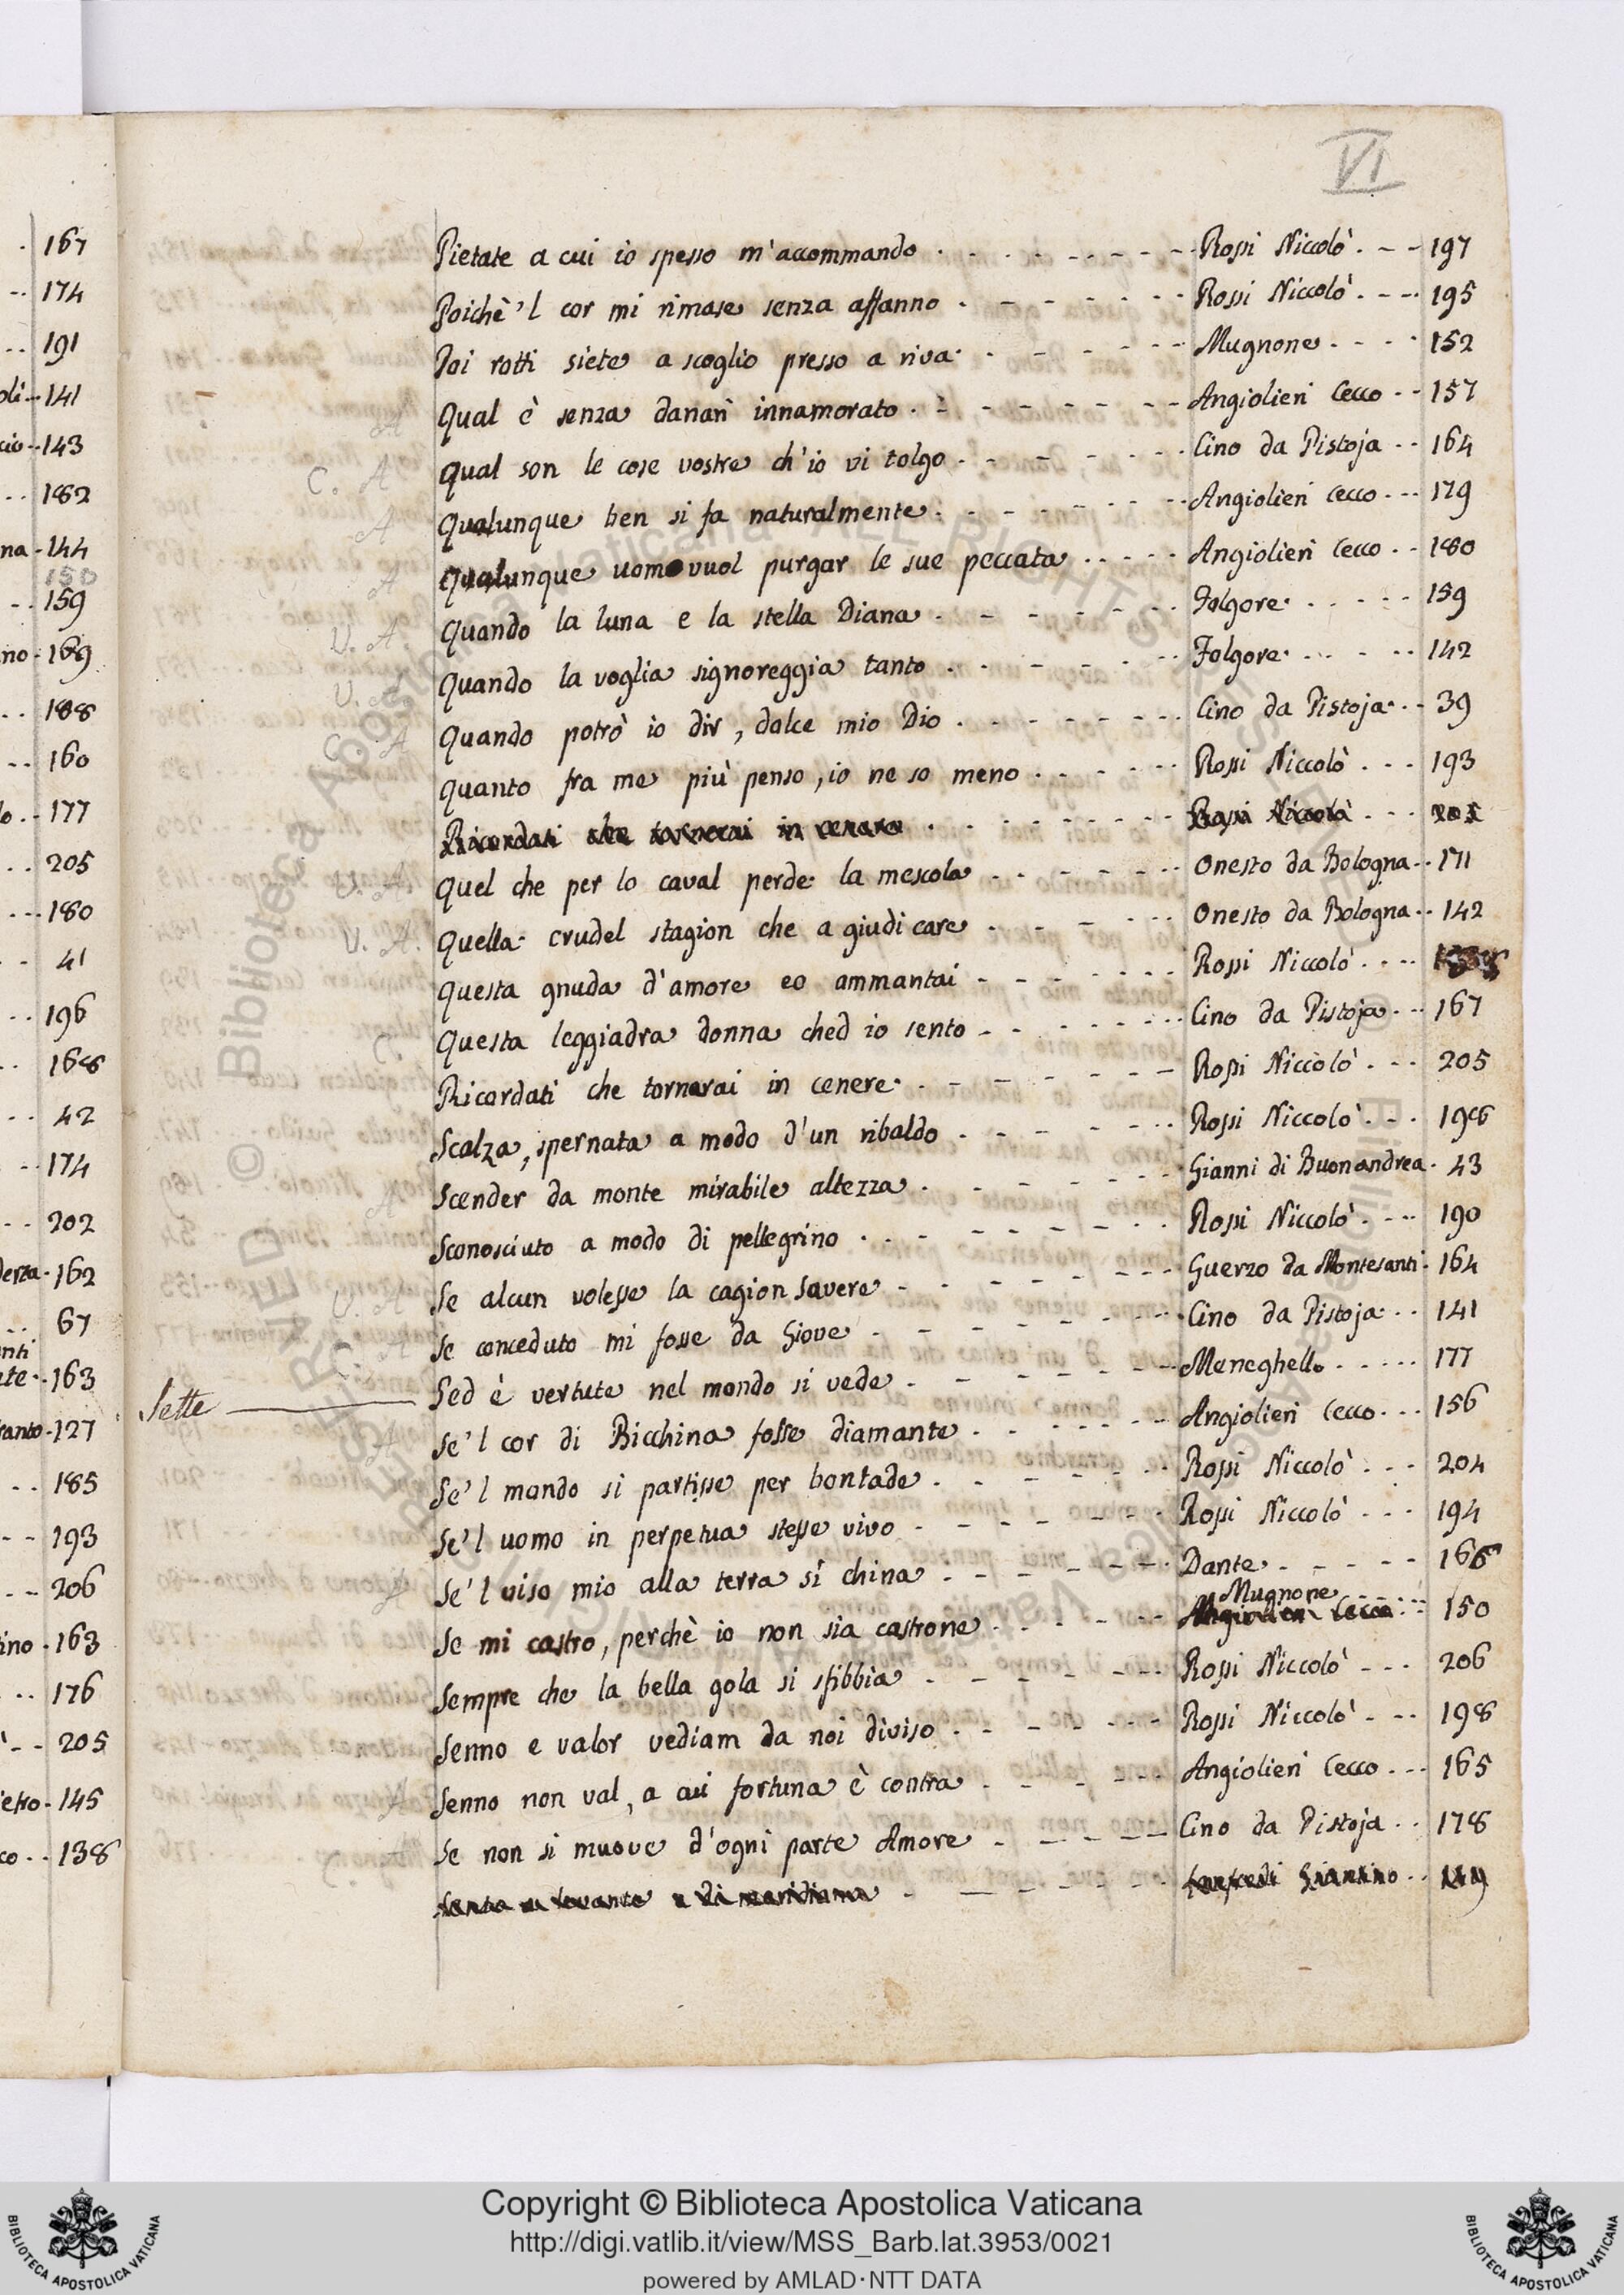 VI
Pietate a cui io spesso m'accommando . . . . - - - - - Rossi Niccolò . - - 197
Poichè 'l cor mi rimase senza affanno . - - - - - - Rossi Niccolò . - - . 195
Poi rotti siete a scoglio presso a riva . . - - - - - Mugnone . - - . 152
Qual è senza danari innamorato . - - - - - - - Angiolieri Cecco . - 157
C. A Qual son le cose vostre ch'io vi tolgo . - - - - - Cino da Pistoja . . 164
A Qualunque ben si fa naturalmente . . - - - - - Angiolieri Cecco . . . 179
A Qualunque uomo vuol purgar le sue peccata . . - - - Angiolieri Cecco . . 180
V. A. Quando la luna e la stella Diana . - - - - - - Folgore . . . . . . 159
V. A. Quando la voglia signoreggia tanto . . - - - - - Folgore . . . . . . 142
C. A Quando potrò io dir, dolce mio Dio . . - - - - - Cino da Pistoja . . 39
Quanto fra me più penso, io ne so meno . . - - - - Rossi Niccolò . . . 193
Ricordati che tornerai in cenere . - - - - - - Rossi Niccolò . . . 205
V. A. Quel che per lo caval perde la mescola . . . - - - Onesto da Bologna . . 171
V. A. Quella crudel stagion che a giudicare . . - - - - Onesto da Bologna . . 142
Questa gnuda d'amore eo ammantai - - - - - - Rossi Niccolò . . . .
C. Questa leggiadra donna ched io sento - - - - - - Cino da Pistoja . . . 167
Ricordati che tornerai in cenere . . - - - - - - Rossi Niccolò . . . 205
Scalza, spernata a modo d'un ribaldo . - - - - - Rossi Niccolò . - . 196
A Scender da monte mirabile altezza . - - - - - Gianni di Buonandrea . 43
Sconosciuto a modo di pellegrino . . - - - - - Rossi Niccolò . - - 190
V. A Se alcun volesse la cagion savere - - - - - - Guerzo da Montesanti . 164
C. A Se conceduto mi fosse da Giove . - - - - - - Cino da Pistoja . . . 141
Sette Sed è vertute nel mondo si vede . - - - - - - Meneghello . . . . . 177
A Se 'l cor di Bicchina fosse diamante . - - - - - Angiolieri Cecco . . . 156
Se 'l mondo si partisse per bontade . - - - - - Rossi Niccolò . . . 204
Se 'l uomo in perpetua stesse vivo . - - - - - Rossi Niccolò . . . 194
Se 'l viso mio alla terra si china . - - - - - - Dante . - - - - - 166
Mugnone
Se mi castro, perchè io non sia castrone . . - - - - Angiolieri Cecco . . 150
Sempre che la bella gola si sfibbia . - - - - - Rossi Niccolò - - . 206
Senno e valor vediam da noi diviso . - - - - - Rossi Niccolò . - . 198
A Senno non val, a cui fortuna è contra . - - - - Angiolieri Cecco . . . 165
C. A Se non si muove d'ogni parte Amore . - - - - Cino da Pistoja . . 178
. 167
-. 174
. . 191
oli-. 141
cio . . 143
. . 182
na . 144
150
- . 159
no . 169
. . 188
- . 160
lo . . 177
. . 205
. . . 180
- - 41
. . 196
. . 168
. . 42
- . 174
. . 202
derza . 162
. . 67
nti
te . . 163
ranto . 127
. . 185
- - 193
. - 206
ino . 163
. . 176
- - 205
etro . 145
co . . 138
© Biblioteca Apostolica Vaticana ALL RIGHTS RESERVED
Copyright © Biblioteca Apostolica Vaticana
http://digi.vatlib.it/view/MSS_Barb.lat.3953/0021
powered by AMLAD･NTT DATA
BIBLIOTECA APOSTOLICA VATICANA
BIBLIOTECA APOSTOLICA VATICANA